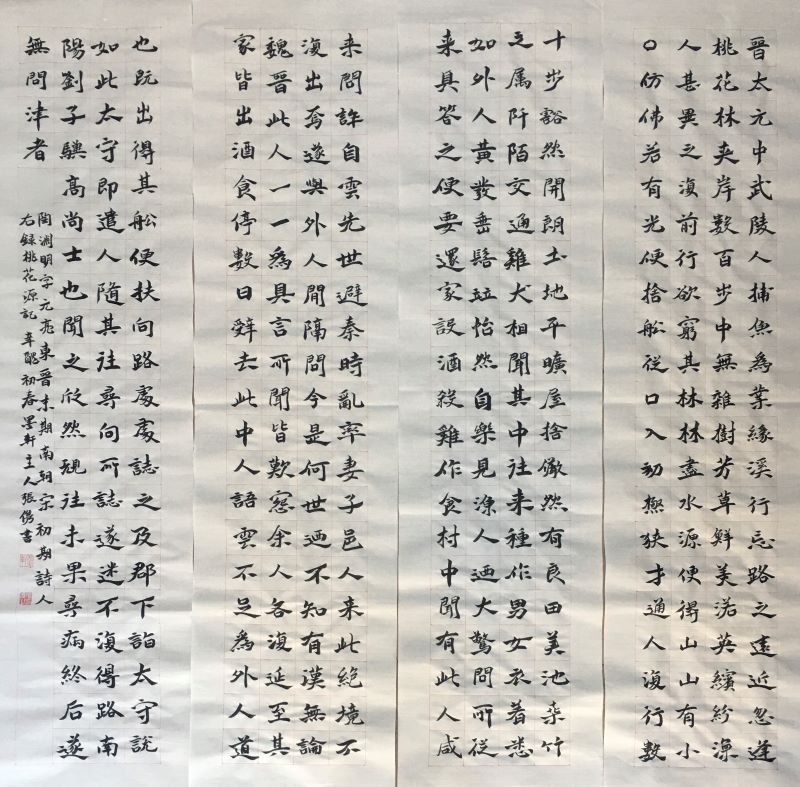 晉太元中武陵人捕魚為業緣溪行忘路之遠近忽逢
桃花林夾岸數百步中無雜樹芳草鮮美落英繽紛漁
人甚異之復前行欲窮其林林盡水源便得山山有小
口仿佛若有光便捨船從口入初極狹才通人復行數
十步豁然開朗土地平曠屋捨儼然有良田美池桑竹
之属阡陌交通雞犬相聞其中往来種作男女衣着悉
如外人黃發垂髫竝怡然自樂見漁人迺大驚問所從
来具答之便要還家設酒殺雞作食村中聞有此人咸
来問訊自雲先世避秦時亂率妻子邑人来此絕境不
復出焉遂與外人間隔問今是何世迺不知有漢無論
魏晉此人一一為具言所聞皆歎惋余人各復延至其
家皆出酒食停數日辭去此中人語雲不足為外人道
也既出得其船便扶向路處處誌之及郡下詣太守說
如此太守即遣人隨其往尋向所誌遂迷不復得路南
陽劉子驥高尚士也聞之欣然規往未果尋病終后遂
無問津者
陶淵明字元亮東晉末期南朝宋初期詩人
右錄桃花源記辛醜初春墨軒主人張書